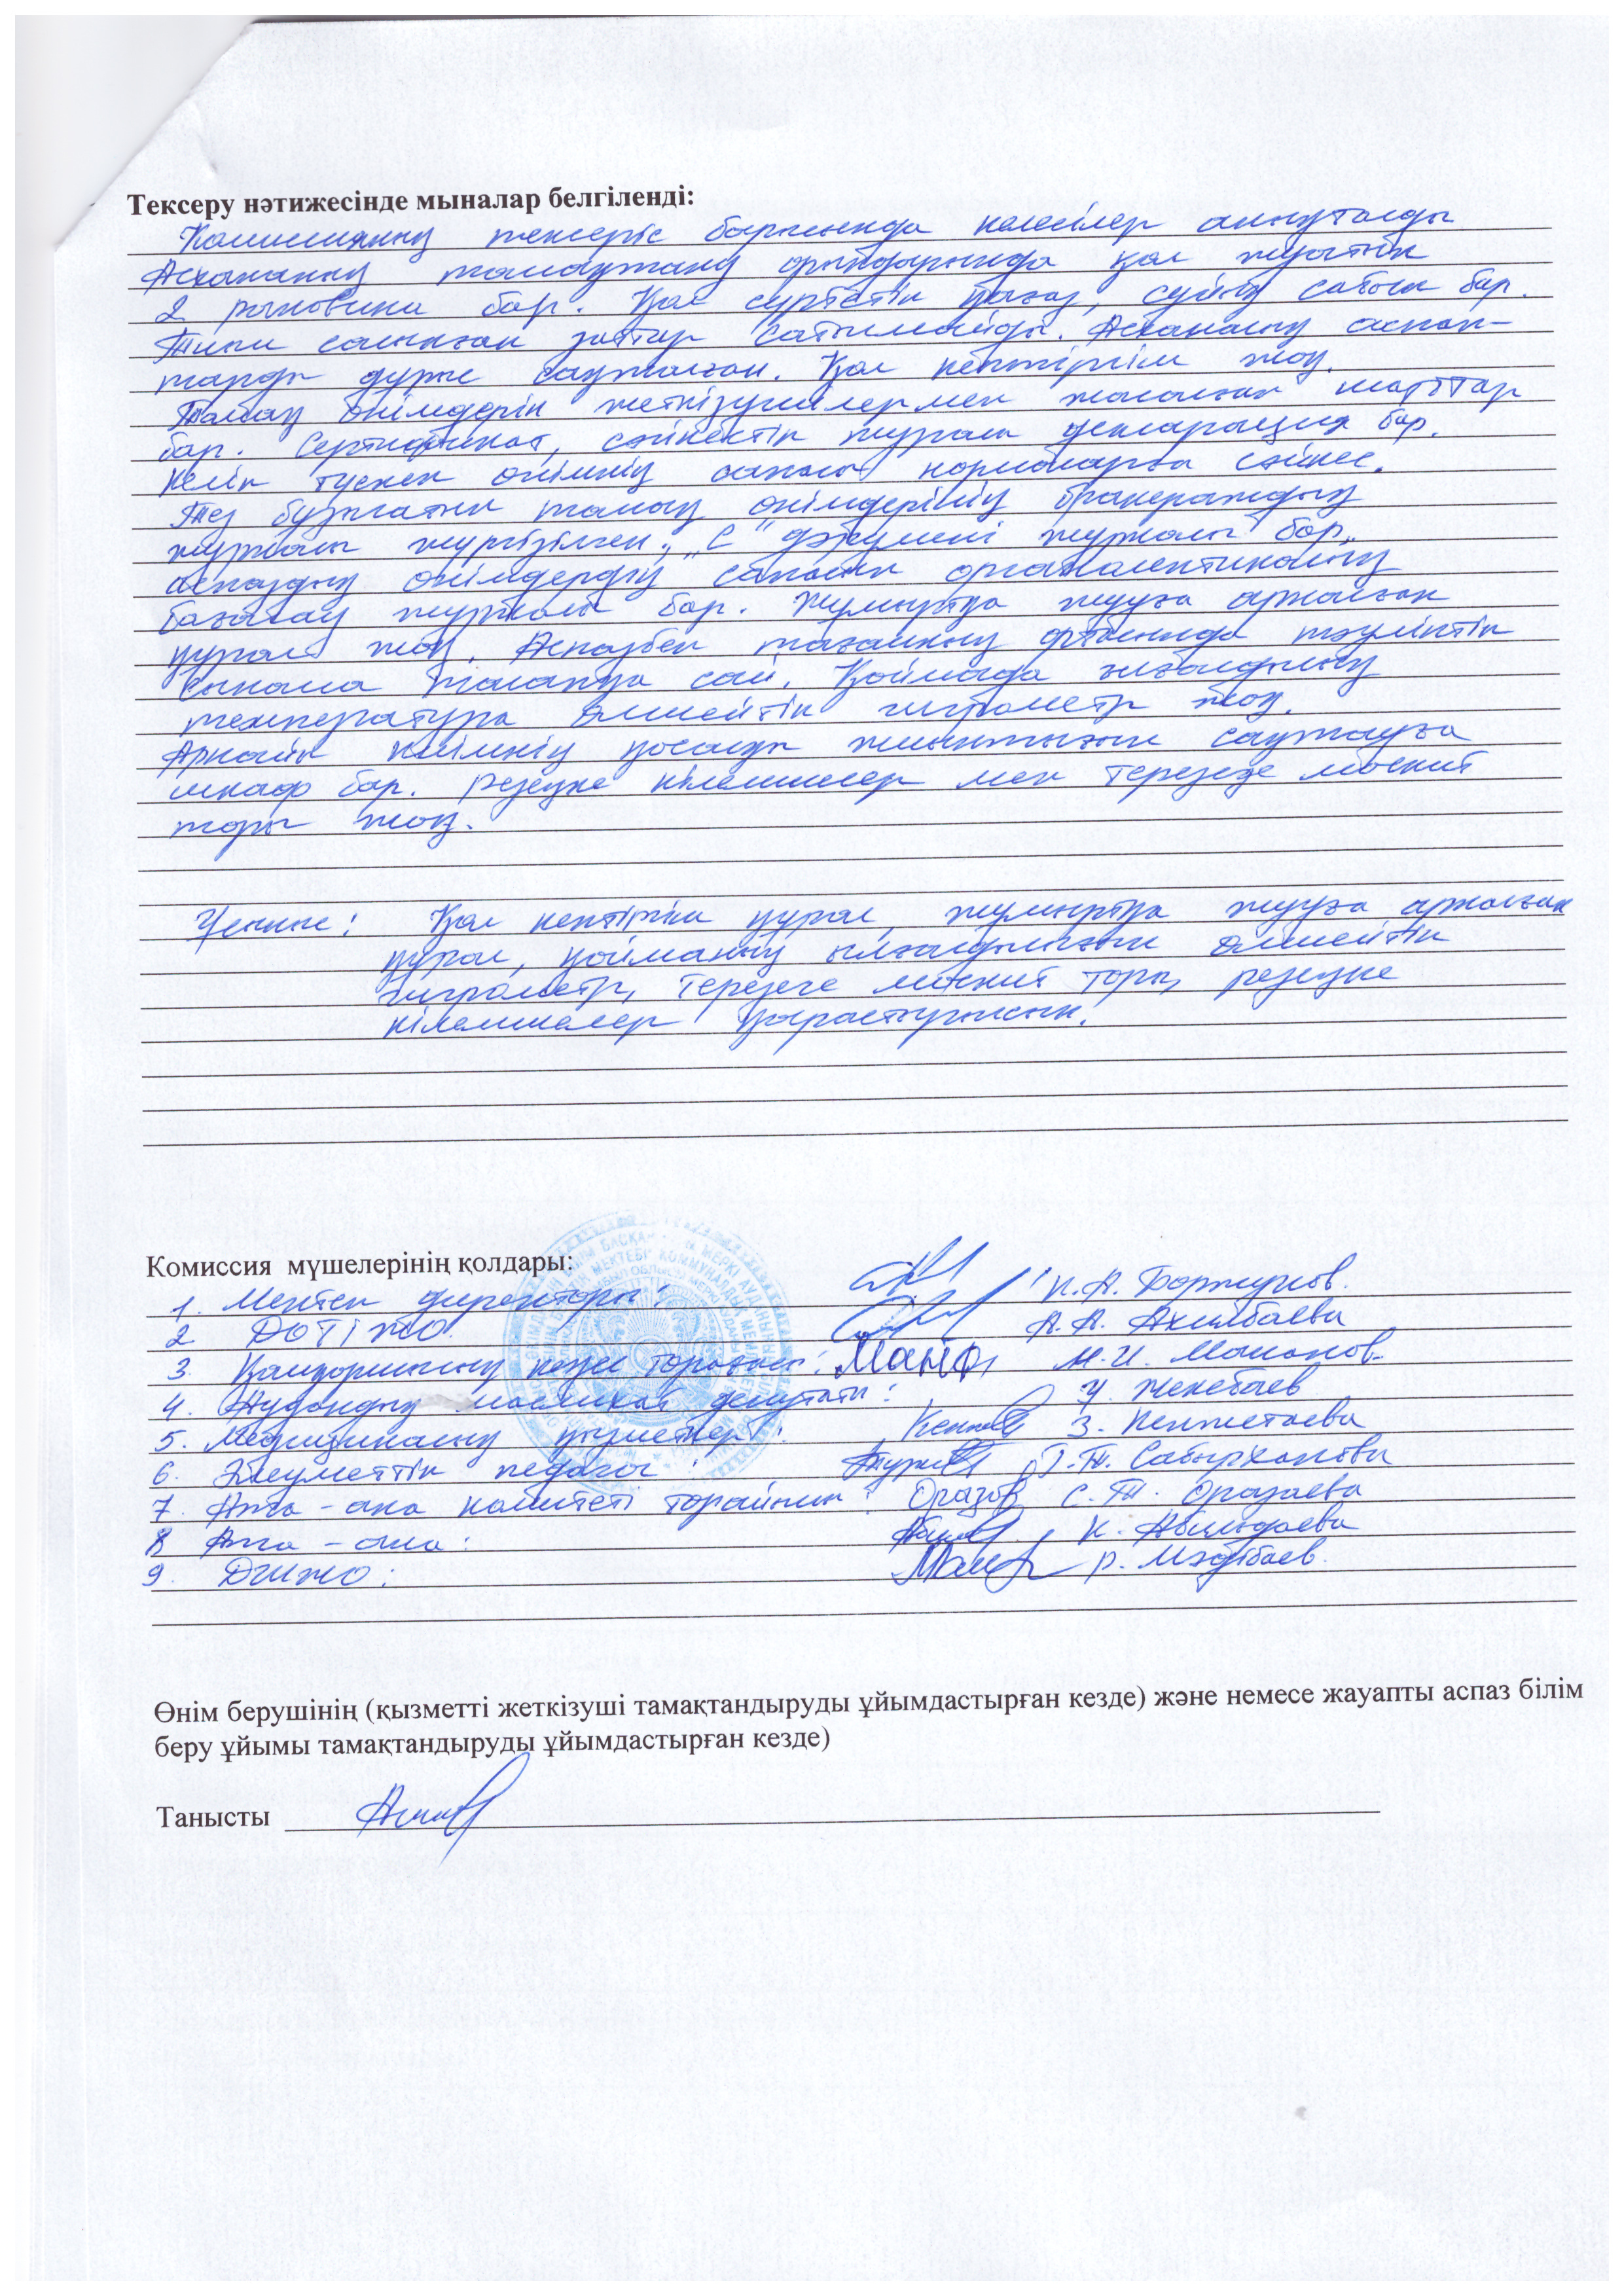 Тексеру нәтижесінде мыналар белгіленді:
Комиссияның тексеріс барысында келесілер анықталды
Асхананың тамақтану орындарында қол жуатын
2 раковина бар. Қол сүртетін қағаз, сұйық сабын бар.
Тиым салынған заттар сатылмайды. Асхананың аспап-
тары дұрыс сақталған. Қол кептіргіш жоқ.
Тамақ өнімдерін жеткізушілермен жасалған шарттар
бар. Сертификат, сәйкестік туралы декларация бар.
Келіп түскен өнімнің сапасы нормаларға сәйкес.
Тез бұзылатын тамақ өнімдерінің бракераждық
журналы жүргізілген. „С" дәрумені журналы бар,
аспаздық өнімдердің сапасын органолептикалық
бағалау журналы бар. Жұмыртқа жууға арналған
құрал жоқ. Аспазбен тағамның тәуліктік
сынама талапқа сай. Қоймада ылғалдылық
температура өлшейтін гигрометр жоқ.
Арнайы киімнің қосалқы жиынтығын сақтауға
шкаф бар. резеңке кілемшелер мен терезеде москит
торы жоқ.
Ұсыныс: Қол кептіргіш құрал, жұмыртқа жууға арналған
құрал, қойманың ылғалдылығын өлшейтін
гигрометр, терезеге москит торы, резеңке
кілемшелер қарастырылсын.
Комиссия мүшелерінің қолдары:
1. Мектеп директоры: Қ.А. Боржунов.
2 ДОТІЖО. А.А. Акимбаева
3. Қамқоршылық кеңес төрағасы: М.И. Маманов.
4. Аудандық маслихат депутаты: У. Женебаев
5. Медициналық қызметкері: З. Кенжетаева
6. Әлеуметтік педагог: Г.Т. Сабырханова
7. Ата-ана комитеті төрайымы: Оразов С.Т. Оразаева
8 Ата-ана: К. Абилдаева
9. ДШЖО: Р. Мәдібаев.
Өнім берушінің (қызметті жеткізуші тамақтандыруды ұйымдастырған кезде) және немесе жауапты аспаз білім
беру ұйымы тамақтандыруды ұйымдастырған кезде)
Танысты